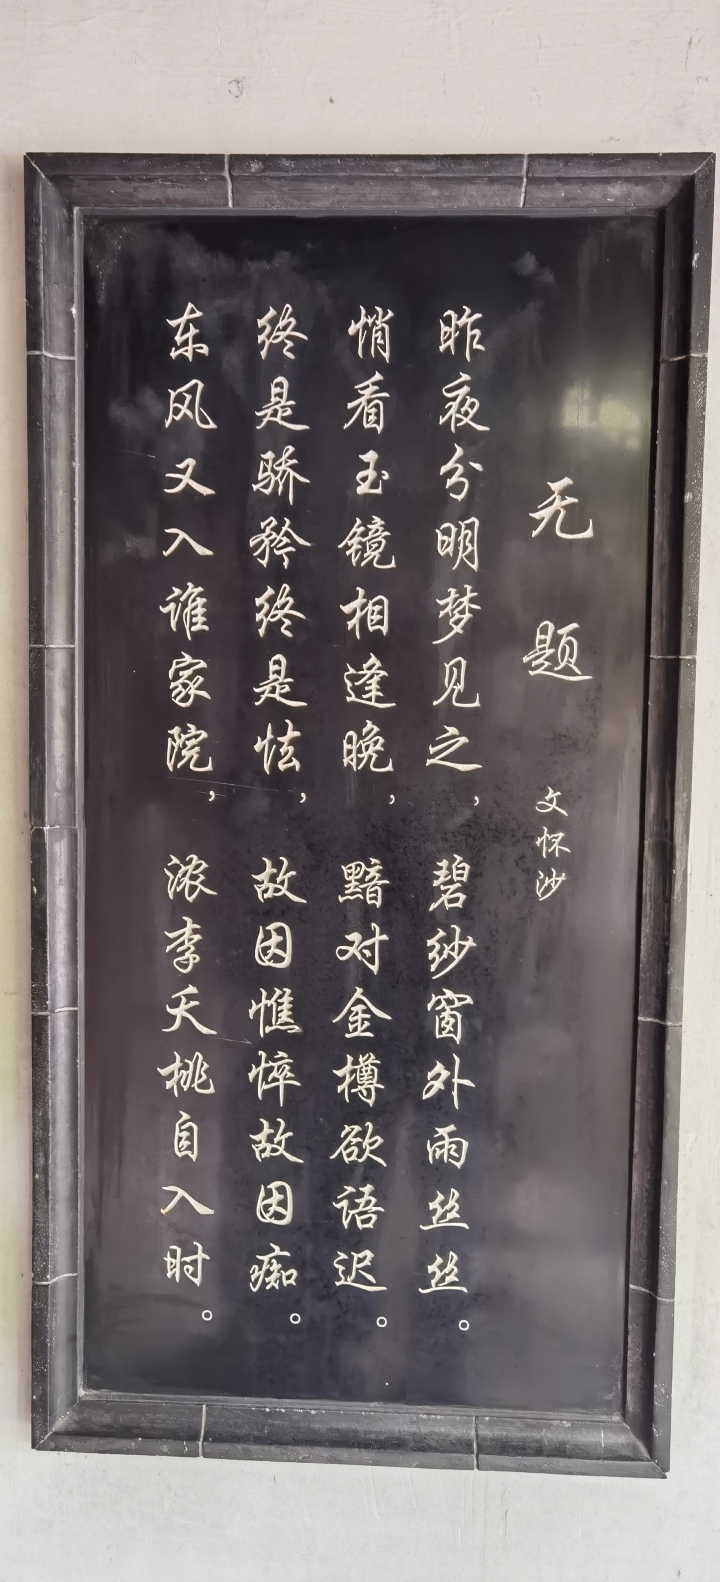 无题 文怀沙
昨夜分明梦见之，碧纱窗外雨丝丝。
悄看玉镜相逢晚，黯对金樽欲语迟。
终是骄矜终是怯，故因憔悴故因痴。
东风又入谁家院，浓李夭桃自入时。